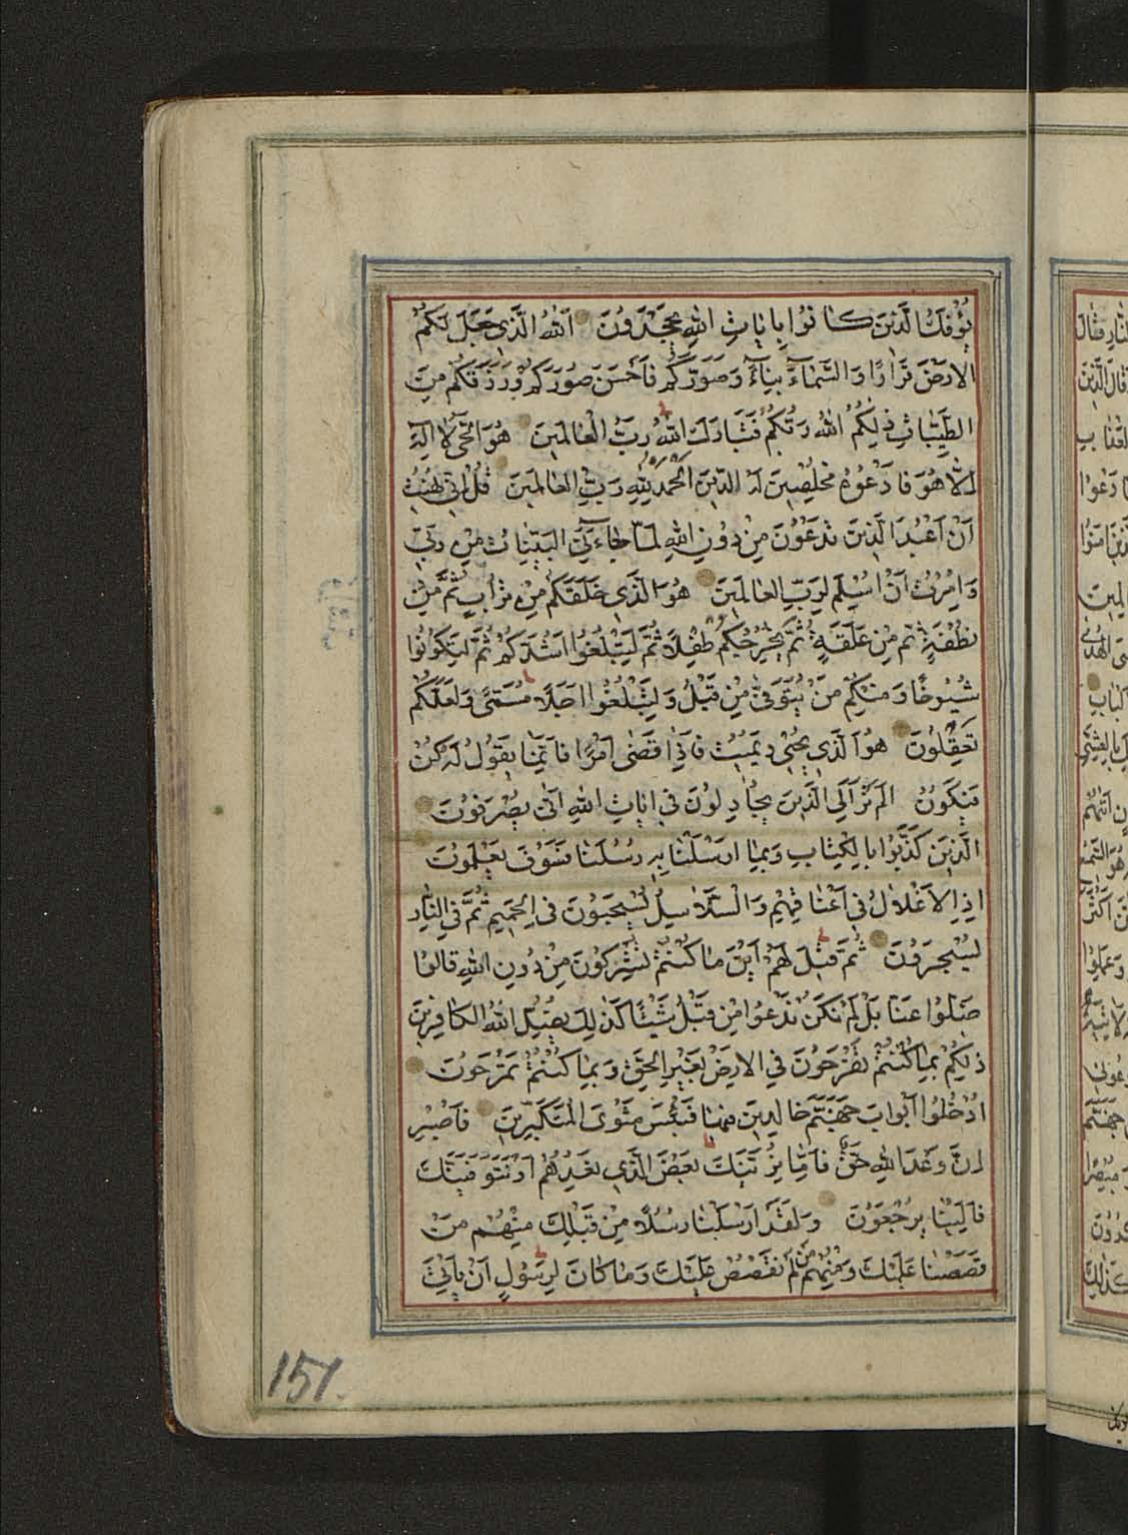 يُؤْفَكُ الَّذينَ كانُوا بِاياتِ اللهِ يَجْحَدُونَ اَللهُ الَّذي جَعَلَ لَكُمُ
الاَرْضَ قَرارًا وَالسَّماءَ بِناءً وَصَوَّرَكُمْ فَاَحْسَنَ صُوَرَكُمْ وَرَزَقَكُمْ مِنَ
الطَّيِّباتِ ذلِكُمُ اللهُ رَبُّكُمْ فَتَبارَكَ اللهُ رَبُّ الْعالَمينَ هُوَ الْحَيُّ لا اِلهَ
اِلّا هُوَ فَادْعُوهُ مُخْلِصينَ لَهُ الدّينَ الْحَمْدُ لِلّهِ رَبِّ الْعالَمينَ قُلْ اِنّي نُهيتُ
اَنْ اَعْبُدَ الَّذينَ تَدْعُونَ مِنْ دُونِ اللهِ لَمّا جاءَنِيَ الْبَيِّناتُ مِنْ رَبّي
وَاُمِرْتُ اَنْ اُسْلِمَ لِرَبِّ الْعالَمينَ هُوَ الَّذي خَلَقَكُمْ مِنْ تُرابٍ ثُمَّ مِنْ
نُطْفَةٍ ثُمَّ مِنْ عَلَقَةٍ ثُمَّ يُخْرِجُكُمْ طِفْلًا ثُمَّ لِتَبْلُغُوا اَشُدَّكُمْ ثُمَّ لِتَكُونُوا
شُيُوخًا وَمِنْكُمْ مَنْ يُتَوَفّى مِنْ قَبْلُ وَلِتَبْلُغُوا اَجَلًا مُسَمًّى وَلَعَلَّكُمْ
تَعْقِلُونَ هُوَ الَّذي يُحْيي وَيُميتُ فَاِذا قَضى اَمْرًا فَاِنَّما يَقُولُ لَهُ كُنْ
فَيَكُونُ اَلَمْ تَرَ اِلَى الَّذينَ يُجادِلُونَ في اياتِ اللهِ اَنّى يُصْرَفُونَ
الَّذينَ كَذَّبُوا بِالْكِتابِ وَبِما اَرْسَلْنا بِهِ رُسُلَنا فَسَوْفَ يَعْلَمُونَ
اِذِ الْاَغْلالُ في اَعْناقِهِمْ وَالسَّلاسِلُ يُسْحَبُونَ فِي الْحَميمِ ثُمَّ فِي النّارِ
يُسْجَرُونَ ثُمَّ قيلَ لَهُمْ اَيْنَ ما كُنْتُمْ تُشْرِكُونَ مِنْ دُونِ اللهِ قالُوا
ضَلُّوا عَنّا بَلْ لَمْ نَكُنْ نَدْعُوا مِنْ قَبْلُ شَيْئًا كَذلِكَ يُضِلُّ اللهُ الْكافِرينَ
ذلِكُمْ بِما كُنْتُمْ تَفْرَحُونَ فِي الْاَرْضِ بِغَيْرِ الْحَقِّ وَبِما كُنْتُمْ تَمْرَحُونَ
اُدْخُلُوا اَبْوابَ جَهَنَّمَ خالِدينَ فيها فَبِئْسَ مَثْوَى الْمُتَكَبِّرينَ فَاصْبِرْ
اِنَّ وَعْدَ اللهِ حَقٌّ فَاِمّا نُرِيَنَّكَ بَعْضَ الَّذي نَعِدُهُمْ اَوْ نَتَوَفَّيَنَّكَ
فَاِلَيْنا يُرْجَعُونَ وَلَقَدْ اَرْسَلْنا رُسُلًا مِنْ قَبْلِكَ مِنْهُمْ مَنْ
قَصَصْنا عَلَيْكَ وَمِنْهُمْ مَنْ لَمْ نَقْصُصْ عَلَيْكَ وَما كانَ لِرَسُولٍ اَنْ يَأْتِيَ
151